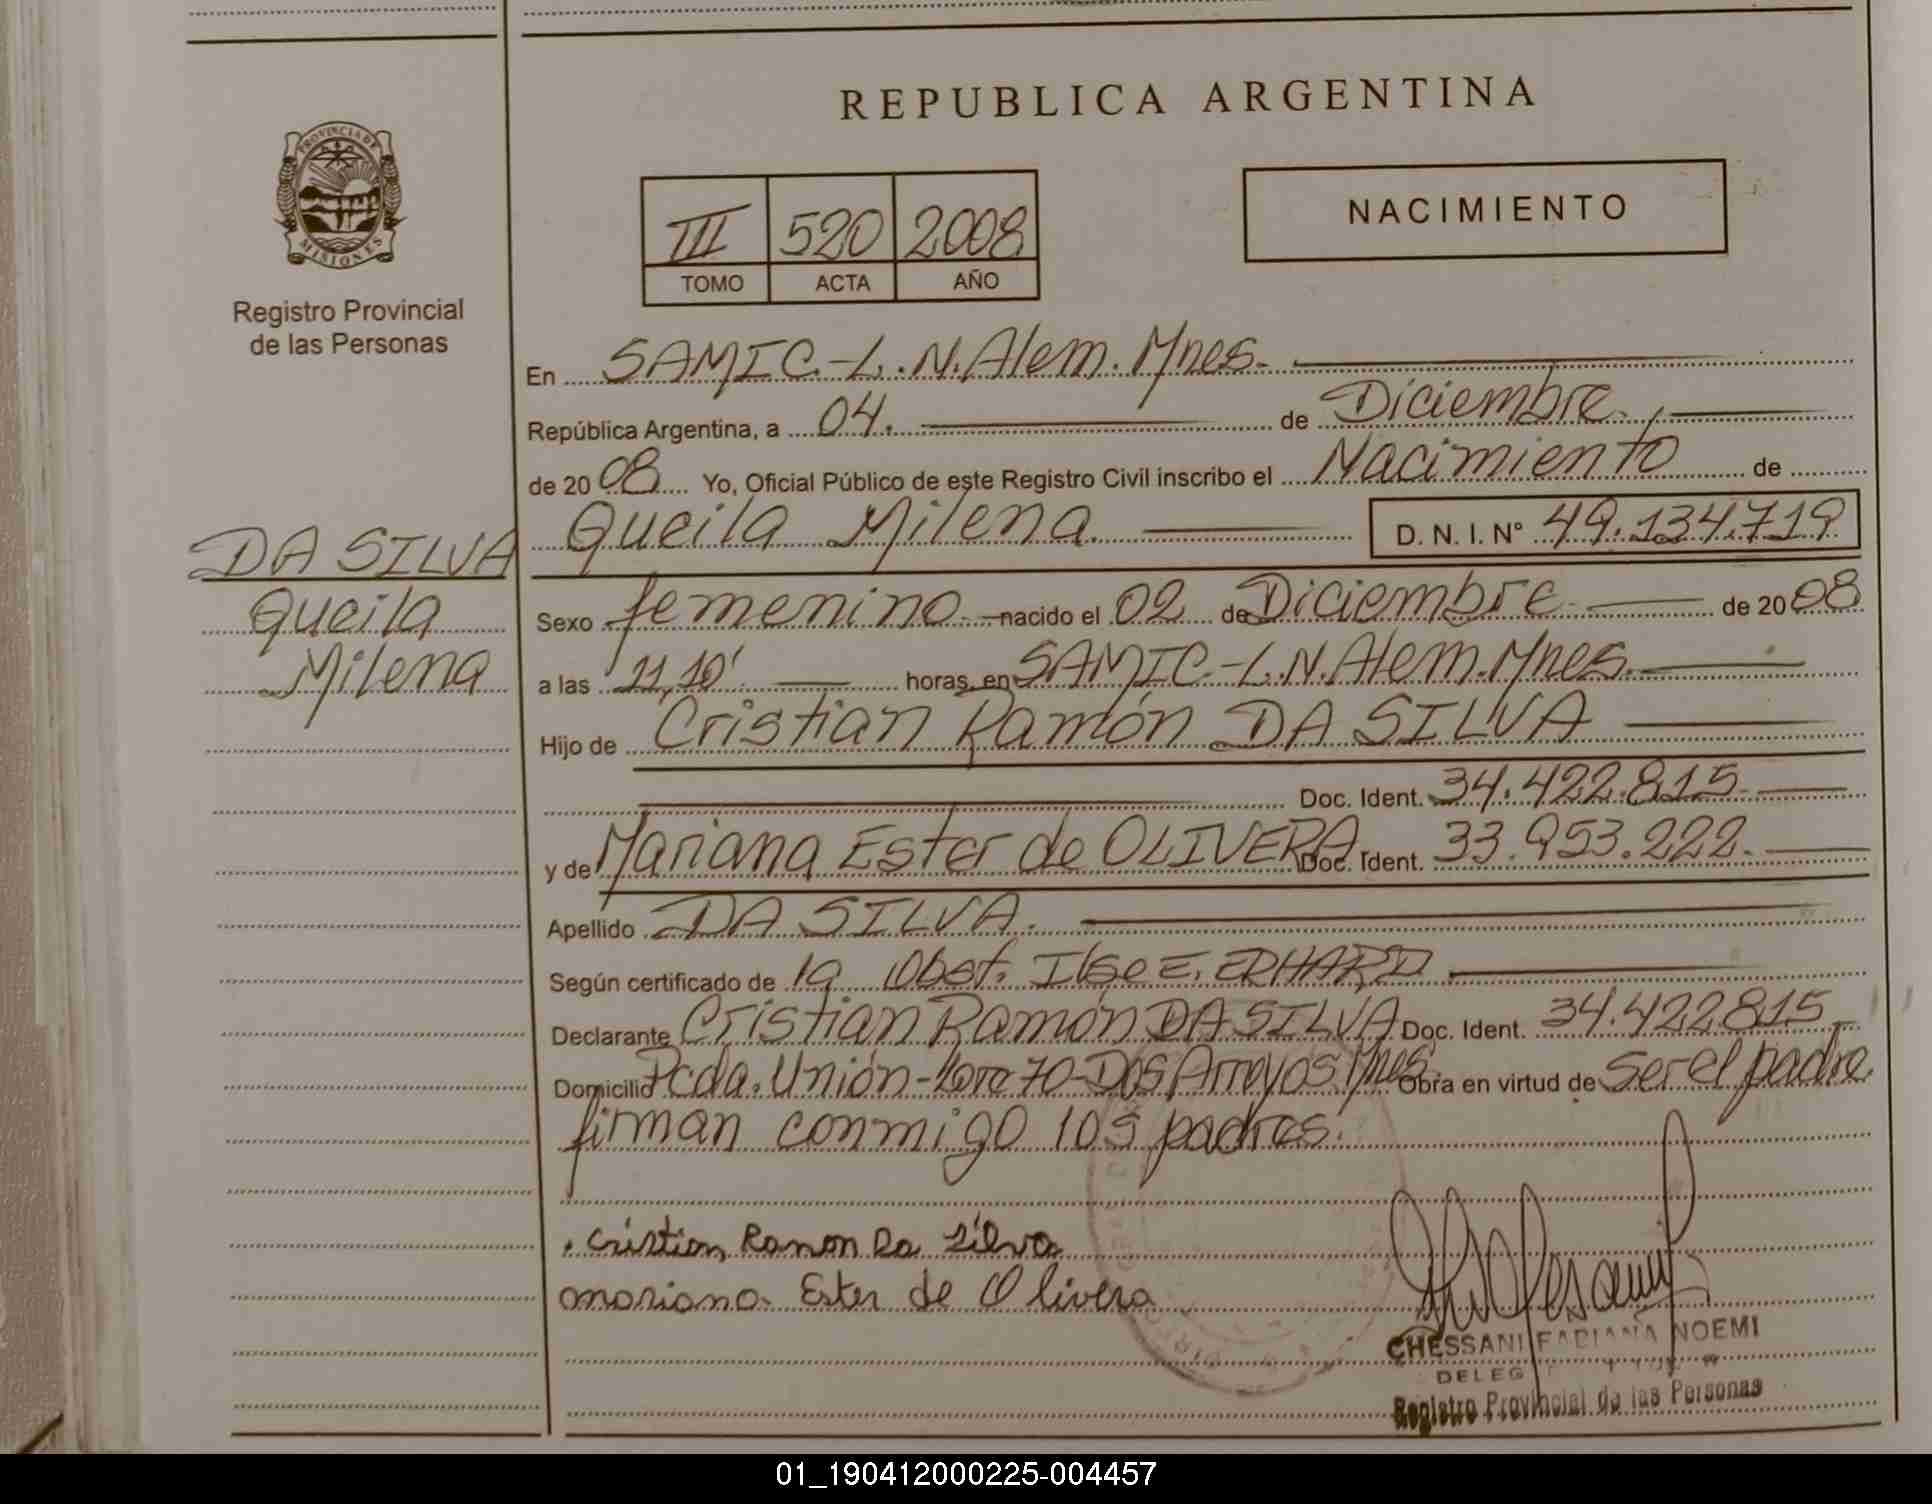 REPUBLICA ARGENTINA
PROVINCIA DE
MISIONES
Registro Provincial
de las Personas
III 520 2008
TOMO ACTA AÑO
NACIMIENTO
En SAMIC.-L.N.Alem.Mnes.-
República Argentina, a 04. de Diciembre.
de 2008 Yo, Oficial Público de este Registro Civil inscribo el Nacimiento de
Queila Milena. D. N. I. N° 49.134.719
DA SILVA
Queila
Milena
Sexo femenino.- nacido el 02 de Diciembre de 2008
a las 11,10' horas, en SAMIC-L.N.Alem.Mnes.
Hijo de Cristian Ramón DA SILVA
Doc. Ident. 34.422.815
y de Mariana Ester de OLIVERA Doc. Ident. 33.953.222.
Apellido DA SILVA.
Según certificado de la Obst. Ilse E. ERHARD
Declarante Cristian Ramón DA SILVA Doc. Ident. 34.422815
Domicilio Pcda. Unión - Lote 70-Dos Arroyos Mnes. Obra en virtud de ser el padre.
firman conmigo los padres.
Cristian Ramon Da Silva
mariana Ester de Olivera
CHESSANI FABIANA NOEMI
Registro Provincial de las Personas
01_190412000225-004457